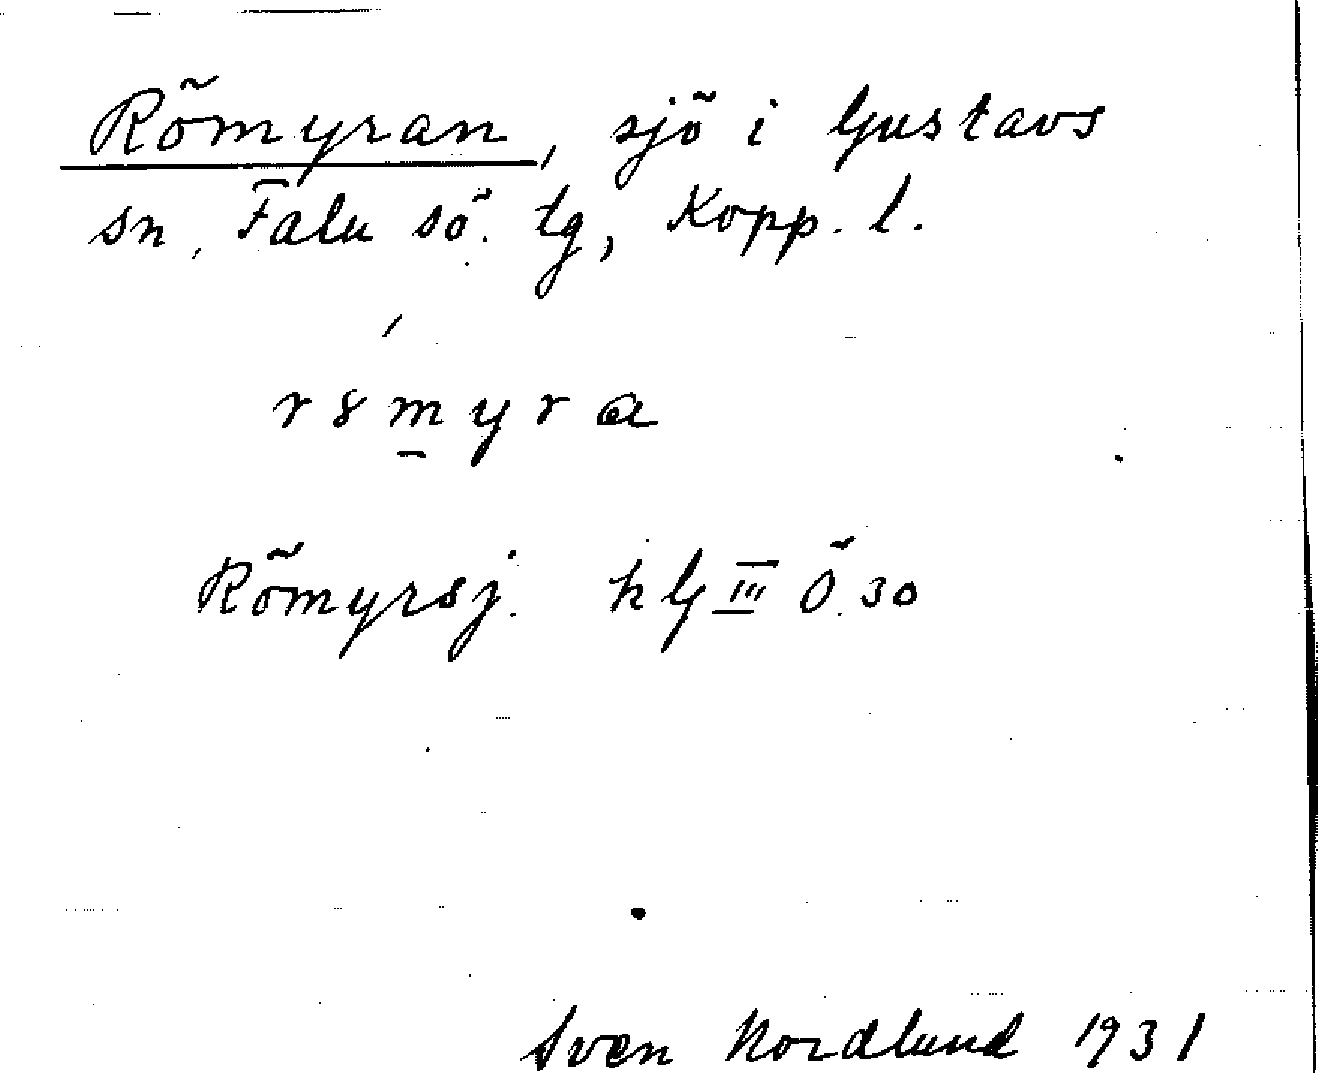 Römyran, sjö i Gustavs
sn, Falu sö. tg, Kopp. l.
r8myra
Römyrsj. hG III Ö. 30
Sven Nordlund 1931